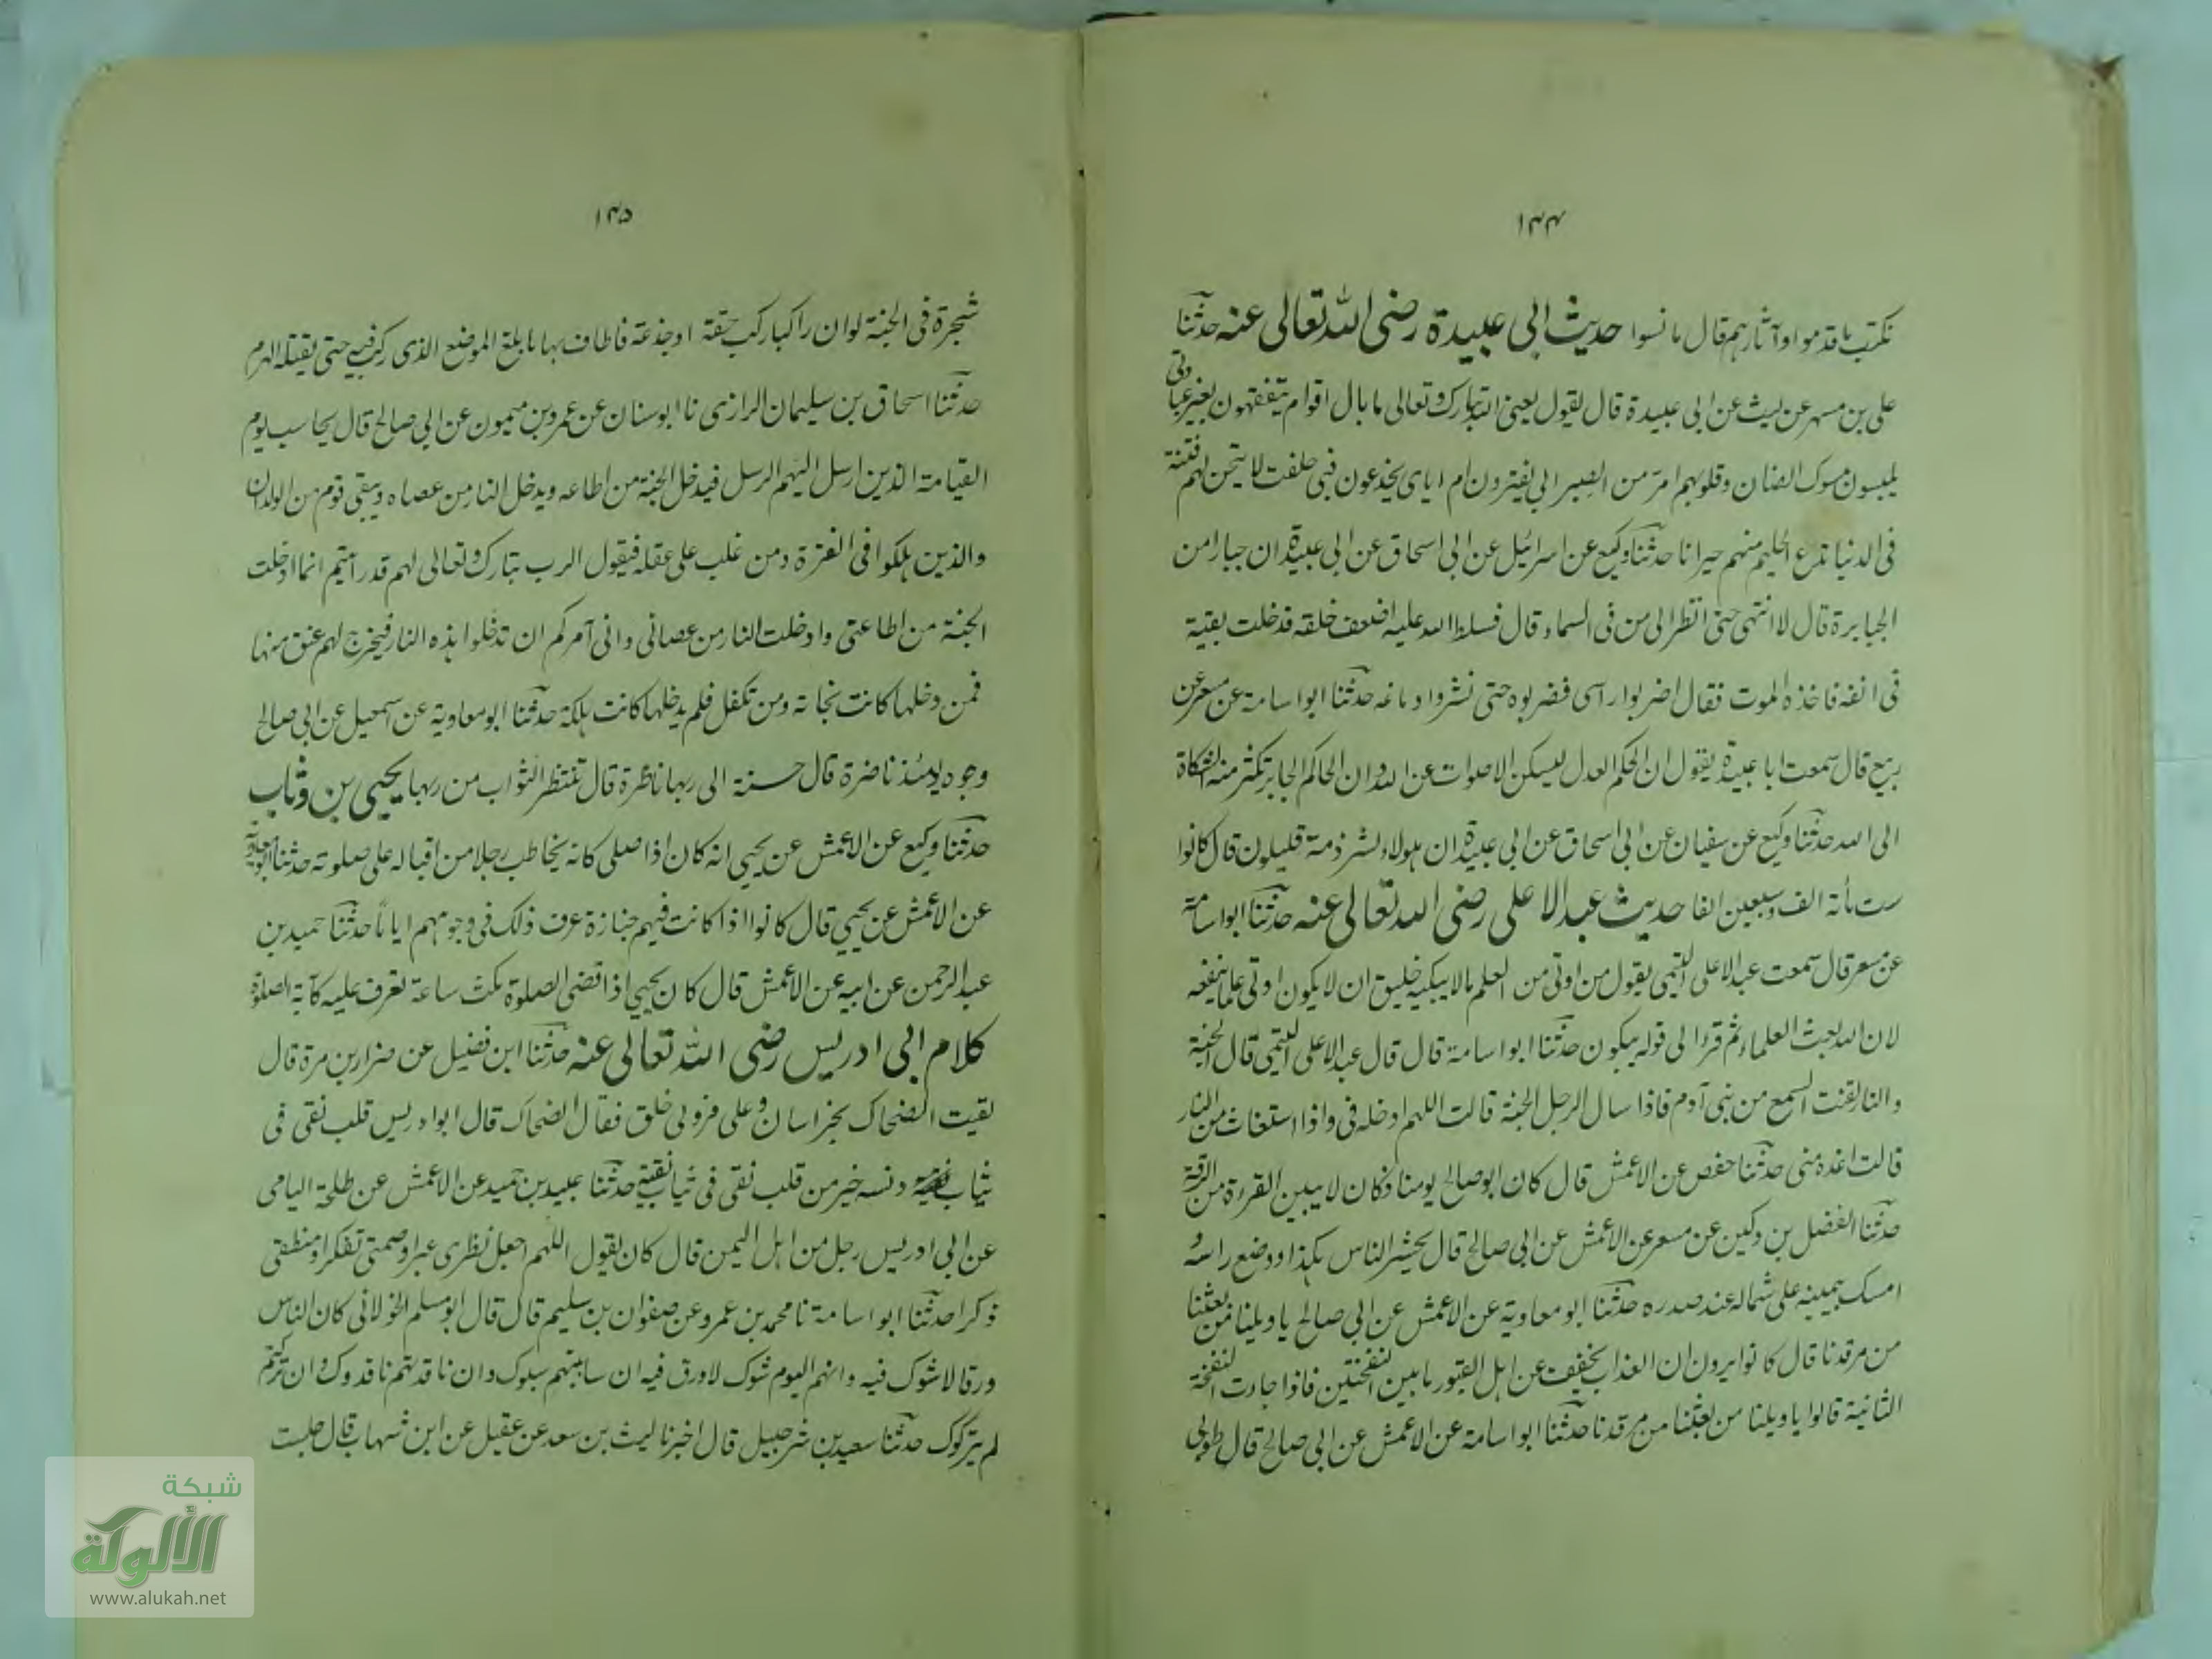 ١٤٤
نكتب ما قدموا وآثارهم قال ما نسوا حديث ابى عبيدة رضى الله تعالى عنه حدثنا
على بن مسهر عن ليث عن ابى عبيدة قال يقول يعنى الله تبارك وتعالى ما بال اقوام يتفقهون بغير عبادتى
يلبسون مسوك الضان وقلوبهم امر من الصبر ابى يغترون ام اياى يخدعون فبى حلفت لا تيحن لهم فتنة
فى الدنيا تدع الحليم منهم حيرانا حدثنا وكيع عن اسرائيل عن ابى اسحاق عن ابى عبيدة ان جبارا من
الجبابرة قال لا انتهى حتى انظر الى من فى السماء قال فسلط الله عليه اضعف خلقه فدخلت بقية
فى انفه فاخذه الموت فقال اضربوا راسى فضربوه حتى نشروا دماغه حدثنا ابو اسامة عن مسعر عن
ربيع قال سمعت ابا عبيدة يقول ان الحكم العدل ليسكن الاصوات عن الله وان الحاكم الجابر تكثر منه الشكاة
الى الله حدثنا وكيع عن سفيان عن ابى اسحاق عن ابى عبيدة ان هولاء لشرذمة قليلون قال كانوا
ست مأئة الف وسبعين الفا حديث عبد الاعلى رضى الله تعالى عنه حدثنا ابو اسامة
عن مسعر قال سمعت عبد الاعلى التيمى يقول من اوتى من العلم ما لا يبكيه خليق ان لا يكون اوتى علما ينفعه
لان الله نعت العلماء ثم قرء الى قوله يبكون حدثنا ابو اسامة قال قال عبد الاعلى التيمى قال الجنة
والنار لقنت السمع من بنى آدم فاذا سال الرجل الجنة قالت اللهم ادخله فى واذا استغاث من النار
قالت اعذه منى حدثنا حفص عن الاعمش قال كان ابو صالح يومنا فكان لا يبين القرءة من الرقة
حدثنا الفضل بن دكين عن مسعر عن الاعمش عن ابى صالح قال يحشر الناس هكذا ووضع راسه و
امسك بيمينه على شماله عند صدره حدثنا ابو معاوية عن الاعمش عن ابى صالح يا ويلنا من بعثنا
من مرقدنا قال كانوا يرون ان العذاب يخفف عن اهل القبور ما بين النفختين فاذا جاءت النفخة
الثانية قالوا يا ويلنا من بعثنا من مرقدنا حدثنا ابو اسامة عن الاعمش عن ابى صالح قال طوبى
١٤٥
شجرة فى الجنة لو ان راكبا ركب حقة او جذعة فاطاف بها ما بلغ الموضع الذى ركب فيه حتى يقتله الهرم
حدثنا اسحاق بن سليمان الرازى نا ابو سنان عن عمرو بن ميمون عن ابى صالح قال يحاسب يوم
القيامة الذين ارسل اليهم الرسل فيدخل الجنة من اطاعه ويدخل النار من عصاه ويبقى قوم من الولدان
والذين هلكوا فى الفترة ومن غلب على عقله فيقول الرب تبارك وتعالى لهم قد رأيتم انما ادخلت
الجنة من اطاعنى وادخلت النار من عصانى وانى آمركم ان تدخلوا هذه النار فيخرج لهم عنق منها
فمن دخلها كانت نجاته ومن تكفل فلم يدخلها كانت هلكة حدثنا ابو معاوية عن اسمعيل عن ابى صالح
وجوه يومئذ ناضرة قال حسنة الى ربها ناظرة قال تنتظر الثواب من ربها يحيى بن وثاب
حدثنا وكيع عن الاعمش عن يحيى انه كان اذا صلى كانه يخاطب رجلا من اقباله على صلوته حدثنا ابو معاوية
عن الاعمش عن يحيى قال كانوا اذا كانت فيهم جنازة عرف ذلك فى وجوههم اياما حدثنا حميد بن
عبد الرحمن عن ابيه عن الاعمش قال كان يحيى اذا قضى الصلوة مكث ساعة تعرف عليه كآبة الصلوة
كلام ابى ادريس رضى الله تعالى عنه حدثنا ابن فضيل عن ضرار بن مرة قال
لقيت الضحاك بخراسان وعلى فرو لى خلق فقال الضحاك قال ابو ادريس قلب نقى فى
ثياب دنسه خير من قلب نقى فى ثياب نقية حدثنا عبيد بن حميد عن الاعمش عن طلحة اليامى
عن ابى ادريس رجل من اهل اليمن قال كان يقول اللهم اجعل نظرى عبرا وصمتى تفكرا ومنطقى
ذكرا حدثنا ابو اسامة نا محمد بن عمرو عن صفوان بن سليم قال قال ابو مسلم الخولانى كان الناس
ورقا لا شوك فيه وانهم اليوم شوك لا ورق فيه ان ساببتهم سبوك وان ناقدتهم ناقدوك وان تركتهم
لم يتركوك حدثنا سعيد بن شرحبيل قال اخبرنا ليث بن سعد عن عقيل عن ابن شهاب قال جلست
شبكة
الألوكة
www.alukah.net